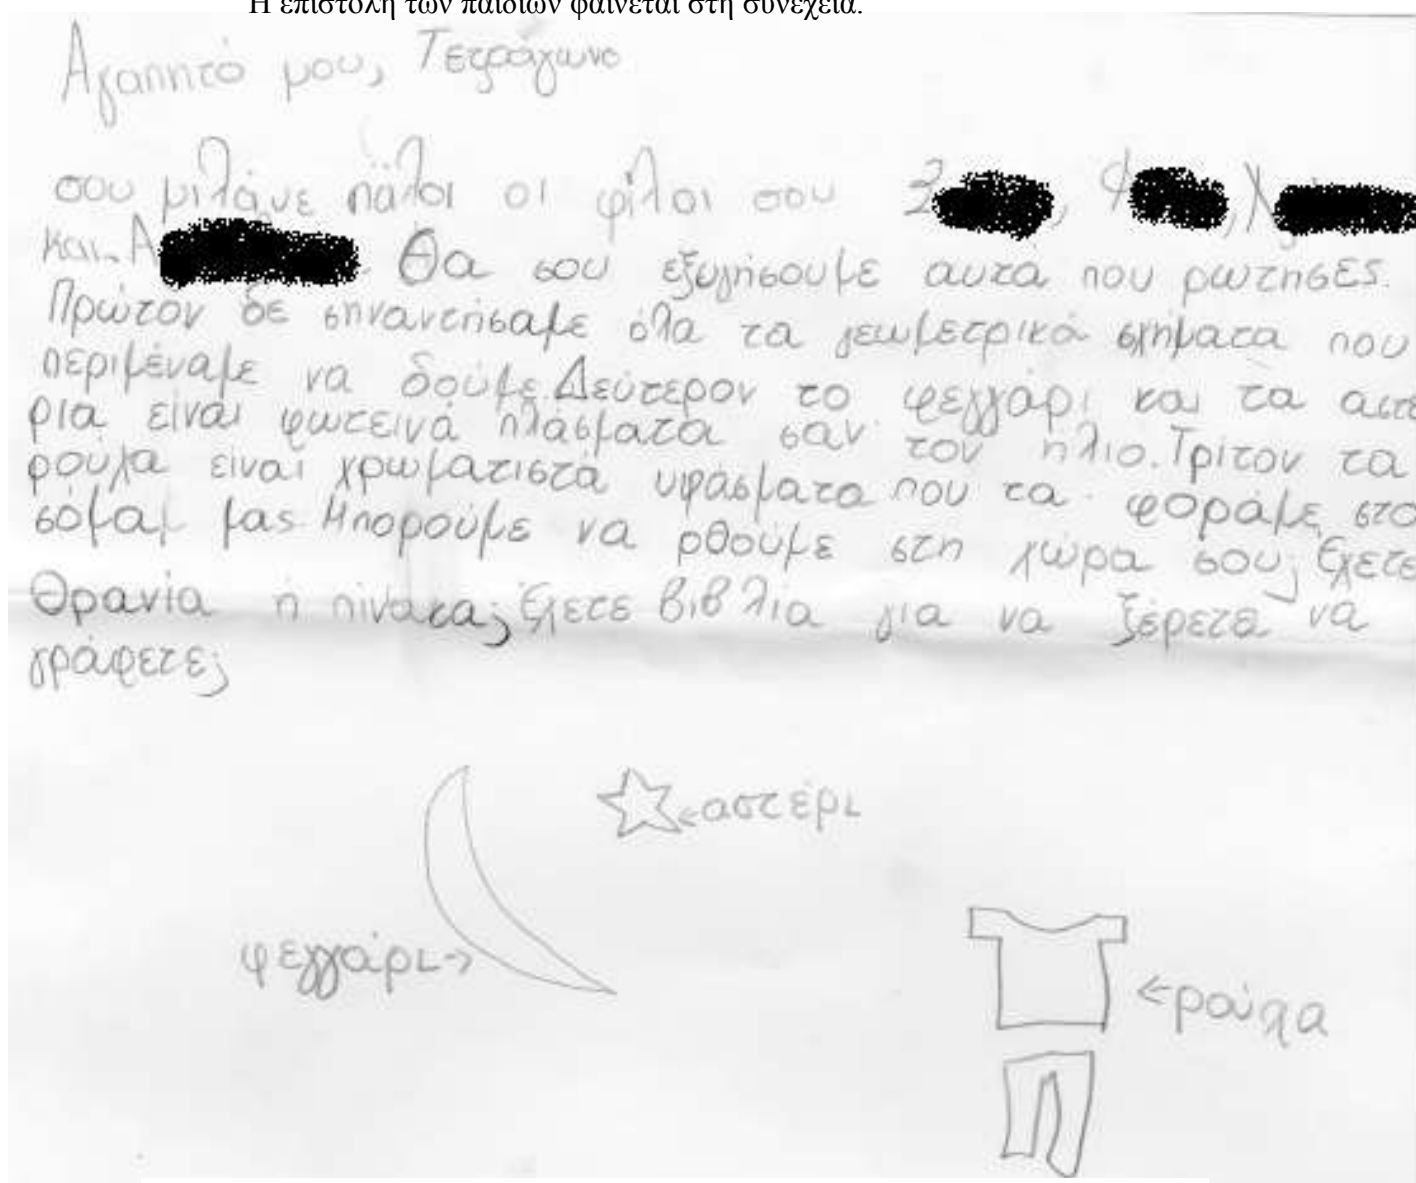 Η επιστολή των παιδιών φαίνεται στη συνέχεια.
Αγαπητό μου, Τετράγωνο
σου μιλάνε πάλοι οι φίλοι σου
και Α
Θα σου εξηγήσουμε αυτα που ρωτησες.
Πρώτον δε σηναντήσαμε όλα τα γεωμετρικά σχήματα που
περιμέναμε να δούμε. Δεύτερον το φεγγάρι και τα αστέ
ρια είναι φωτεινά πλάσματα σαν τον ηλιο. Τρίτον τα
ρούχα είναι χρωματιστά υφάσματα που τα φοράμε στο
μας. Μπορούμε να ρθούμε στη χώρα σου; Έχετε
Θρανία η πίνακα; Έχετε βιβλία για να ξέρετε να
γράφετε;
αστέρι
φεγγάρι
ρούχα